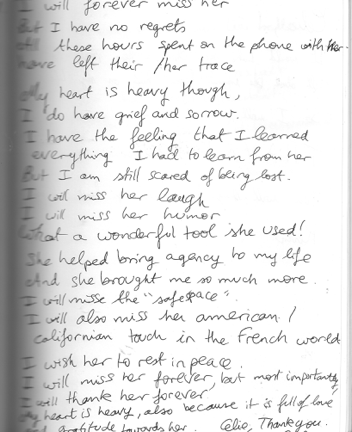 I will forever miss her
But I have no regrets
All these hours spent on the phone with her
have left their /her trace
My heart is heavy though,
I do have grief and sorrow.
I have the feeling that I learned
everything I had to learn from her
But I am still scared of being lost.
I will miss her laugh
I will miss her humor
What a wonderful tool she used!
She helped bring agency to my life
And she brought me so much more.
I will misse the "safespace".
I will also miss her american /
californian touch in the French world
I wish her to rest in peace.
I will miss her forever, but most importantly,
I will thank her forever
My heart is heavy, also because it is full of love
and gratitude towards her. Thank you.